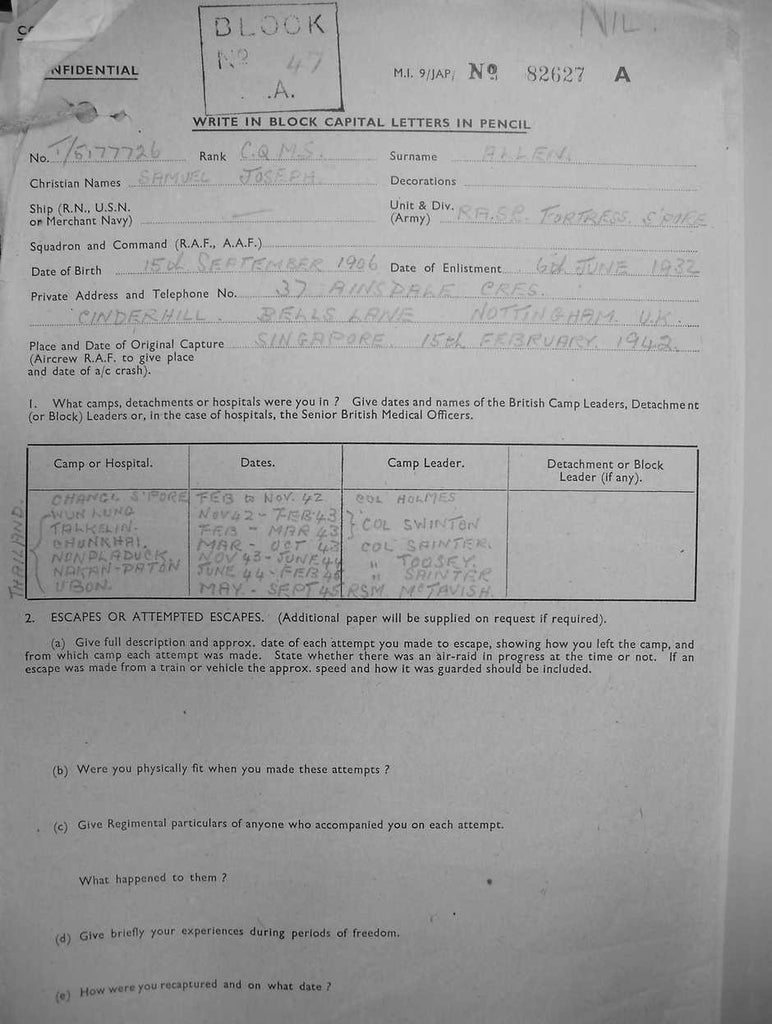 BLOCK
NIL.
NFIDENTIAL
No 47
M.I. 9/JAP/ No 82627 A
.A.
WRITE IN BLOCK CAPITAL LETTERS IN PENCIL
No. T/5177726 Rank C.Q.M.S. Surname ALLEN.
Christian Names SAMUEL JOSEPH. Decorations
Ship (R.N., U.S.N. or Merchant Navy) Unit & Div. (Army) R.A.S.C. FORTRESS S'PORE
Squadron and Command (R.A.F., A.A.F.)
Date of Birth 15th SEPTEMBER 1906 Date of Enlistment 6th JUNE 1932
Private Address and Telephone No. 37 AINSDALE CRES.
CINDERHILL. BELLS LANE NOTTINGHAM. U.K.
Place and Date of Original Capture SINGAPORE. 15th FEBRUARY. 1942.
(Aircrew R.A.F. to give place
and date of a/c crash).
1. What camps, detachments or hospitals were you in ? Give dates and names of the British Camp Leaders, Detachment
(or Block) Leaders or, in the case of hospitals, the Senior British Medical Officers.
Camp or Hospital. Dates. Camp Leader. Detachment or Block Leader (if any).
CHANGI S'PORE FEB to NOV. 42 COL HOLMES
THAILAND.
WUN KUNG NOV 42 - FEB 43
TARKELIN. FEB - MAR 43 COL SWINTON
CHUNKHAI. MAR - OCT 43 COL SAINTER.
NONPLADUCK. NOV 43 - JUNE 44 " TOOSEY.
NAKAN-PATON JUNE 44 - FEB 45 " SAINTER
UBON. MAY - SEPT 45 RSM McTAVISH.
2. ESCAPES OR ATTEMPTED ESCAPES. (Additional paper will be supplied on request if required).
(a) Give full description and approx. date of each attempt you made to escape, showing how you left the camp, and
from which camp each attempt was made. State whether there was an air-raid in progress at the time or not. If an
escape was made from a train or vehicle the approx. speed and how it was guarded should be included.
(b) Were you physically fit when you made these attempts ?
(c) Give Regimental particulars of anyone who accompanied you on each attempt.
What happened to them ?
(d) Give briefly your experiences during periods of freedom.
(e) How were you recaptured and on what date ?